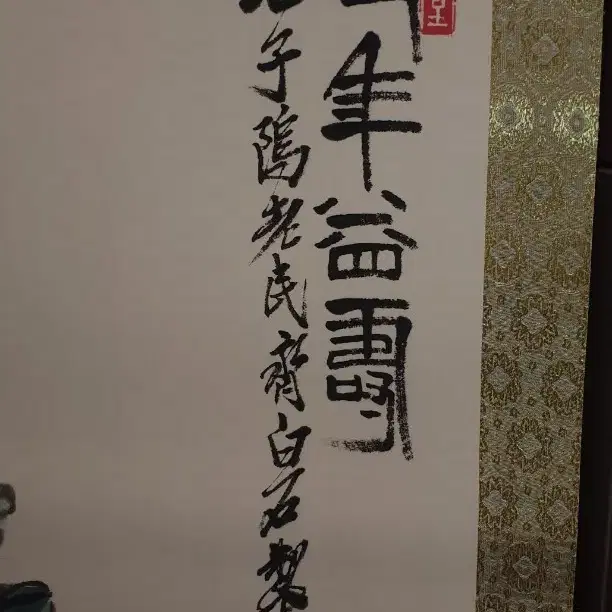 年益壽
子隖老民齊白石製